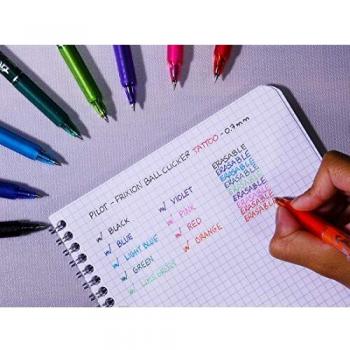 PILOT - FRIXION BALL CLICKER TATTOO - 0.7mm
BLACK
BLUE
LIGHT BLUE
GREEN
LIME GREEN
VIOLET
PINK
RED
ORANGE
ERASABLE
ERASABLE
ERASABLE
ERASABLE
ERASABLE
ERASABLE
ERASABLE
ERASABLE
ERASABLE